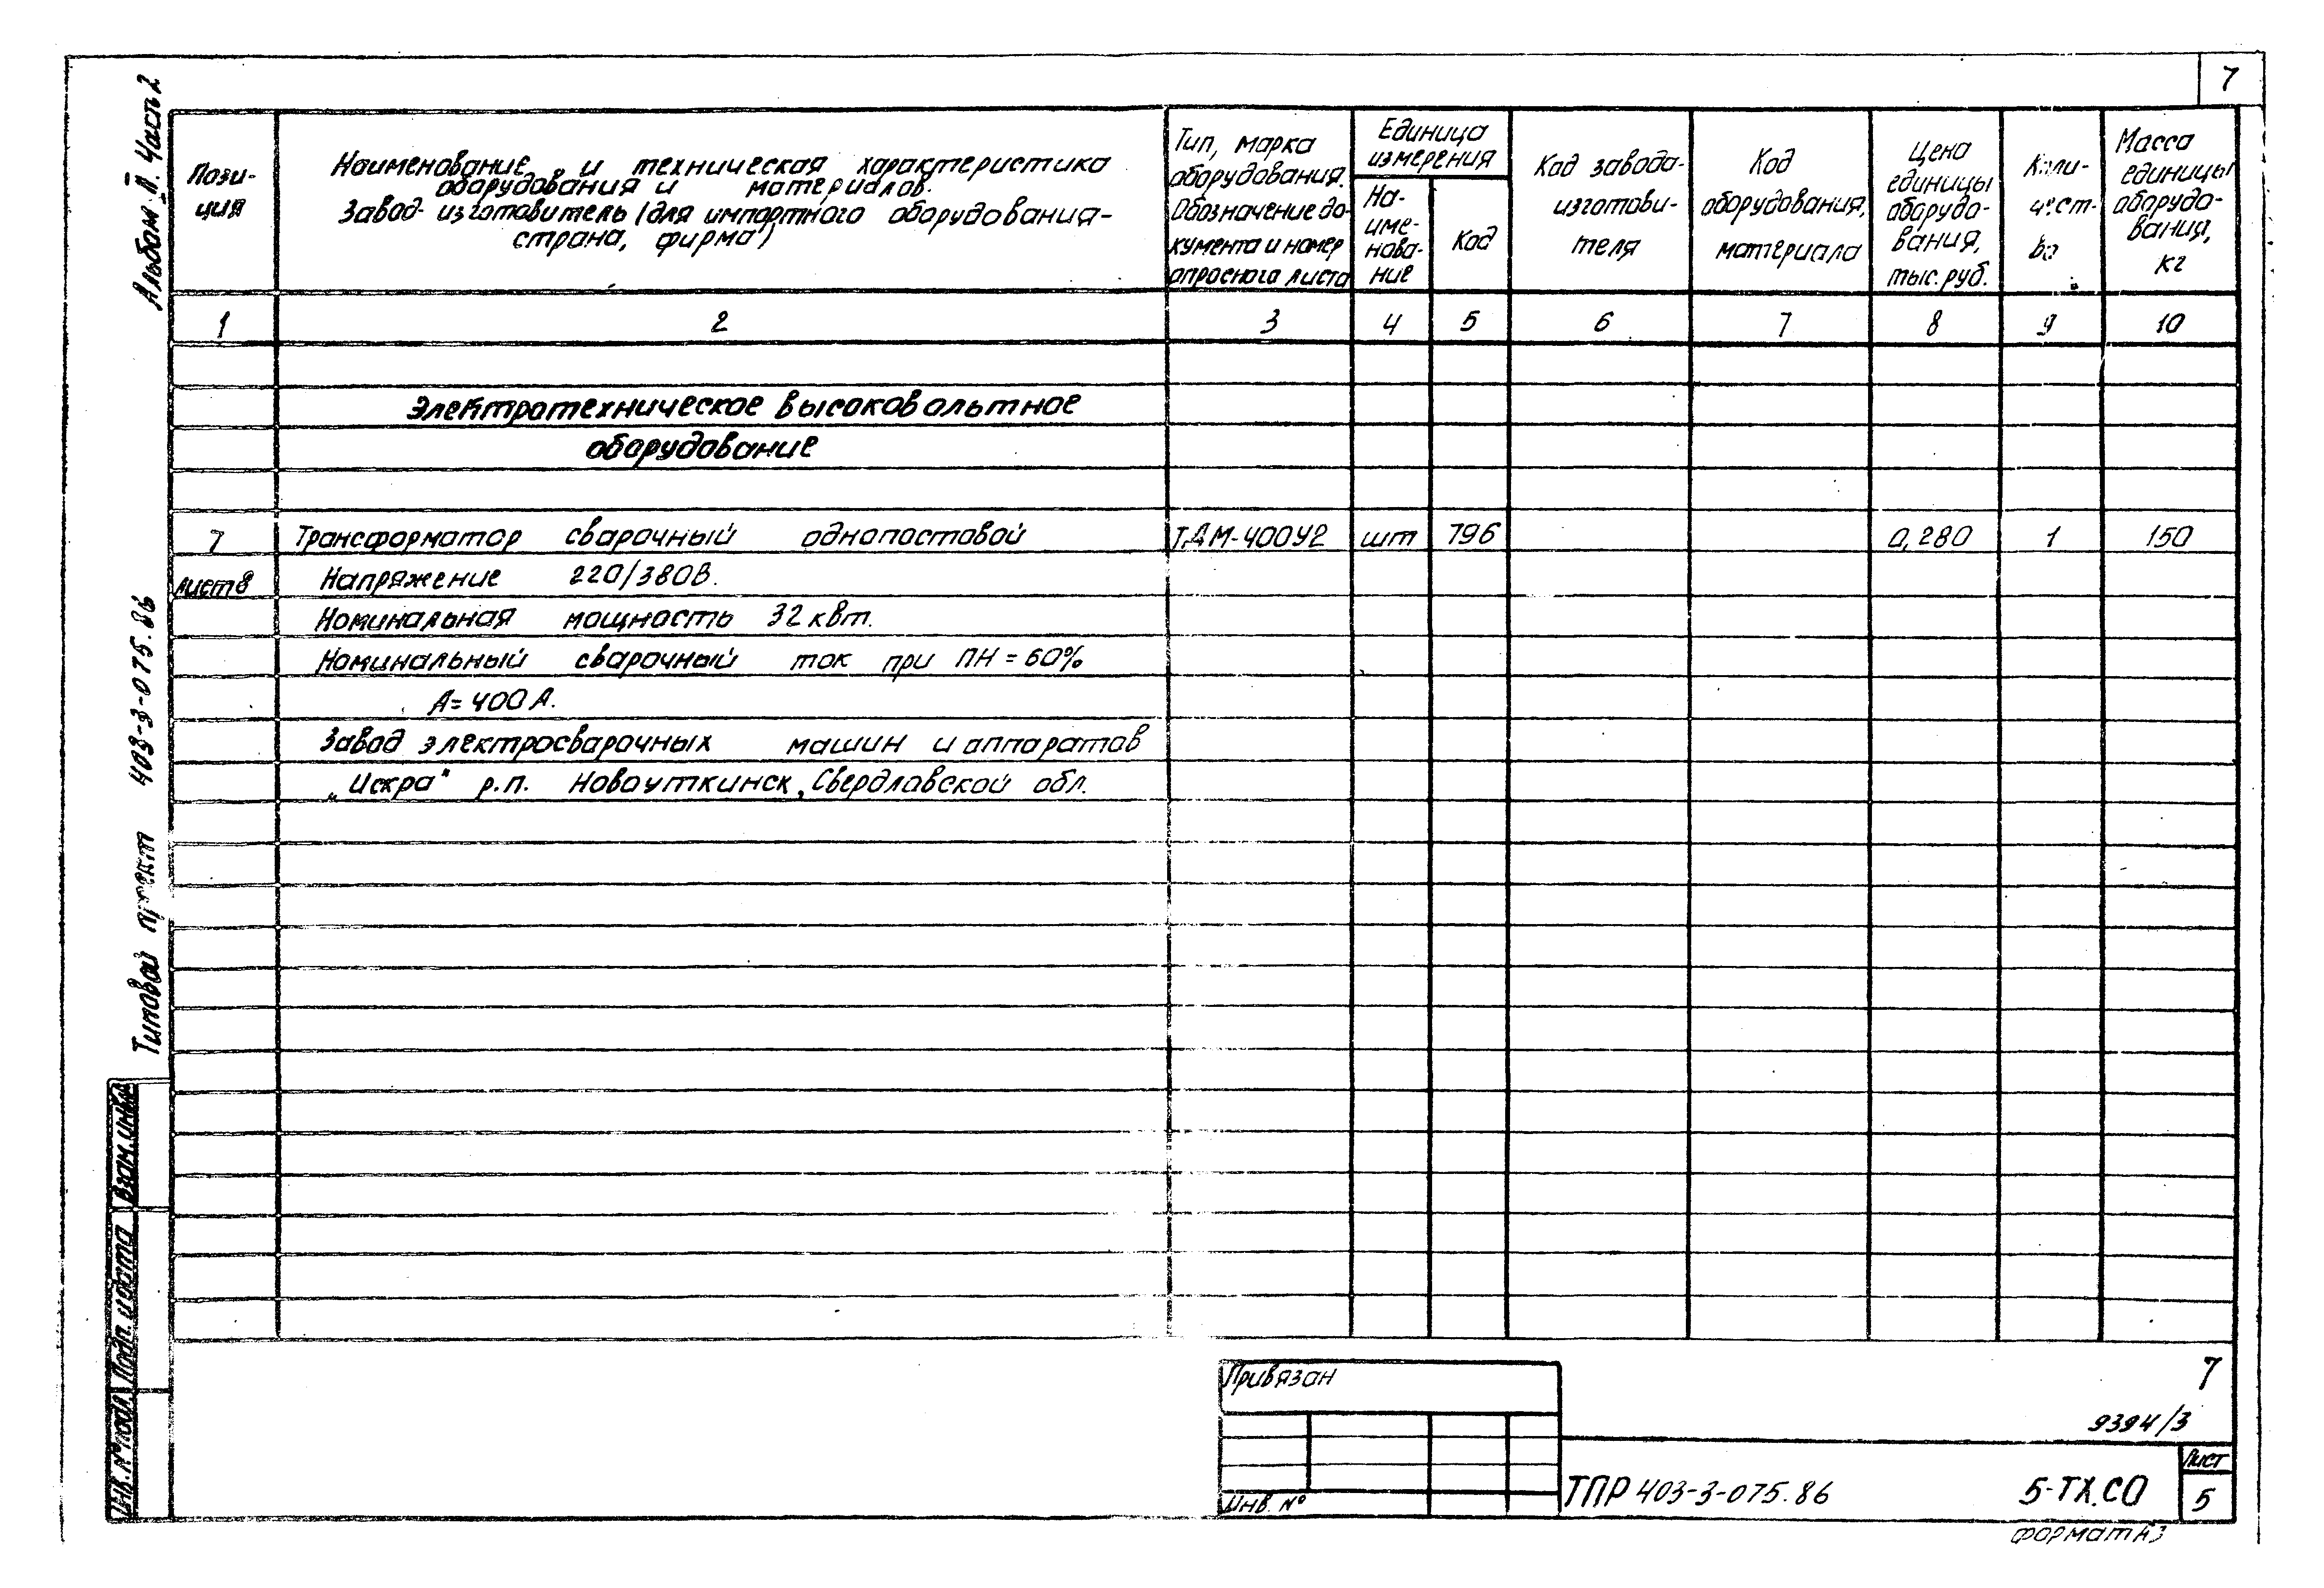 7
Альбом II. Часть 2
Типовой проект 403-3-075.86
Пози-
ция
Наименование и техническая характеристика
оборудования и материалов.
Завод-изготовитель (для импортного оборудования-
страна, фирма)
Тип, марка
оборудования.
Обозначение до-
кумента и номер
опросного листа
Единица
измерения
На-
име-
нова-
ние
Код
Код завода-
изготови-
теля
Код
оборудования,
материала
Цена
единицы
оборудо-
вания,
тыс. руб.
Коли-
чест-
во
Масса
единицы
оборудо-
вания,
кг
1 2 3 4 5 6 7 8 9 10
Электротехническое высоковольтное
оборудование
7 Трансформатор сварочный однопостовой ТДМ-400У2 шт 796 0,280 1 150
лист 8 Напряжение 220/380В.
Номинальная мощность 32 квт.
Номинальный сварочный ток при ПН = 60%
А = 400 А.
Завод электросварочных машин и аппаратов
„Искра" р.п. Новоуткинск, Свердловской обл.
Взам. инв. №
Подп. и дата
Инв. № подл.
Привязан
Инв. №
7
9394/3
ТПР 403-3-075.86 5-ТХ.СО
Лист
5
Формат А3